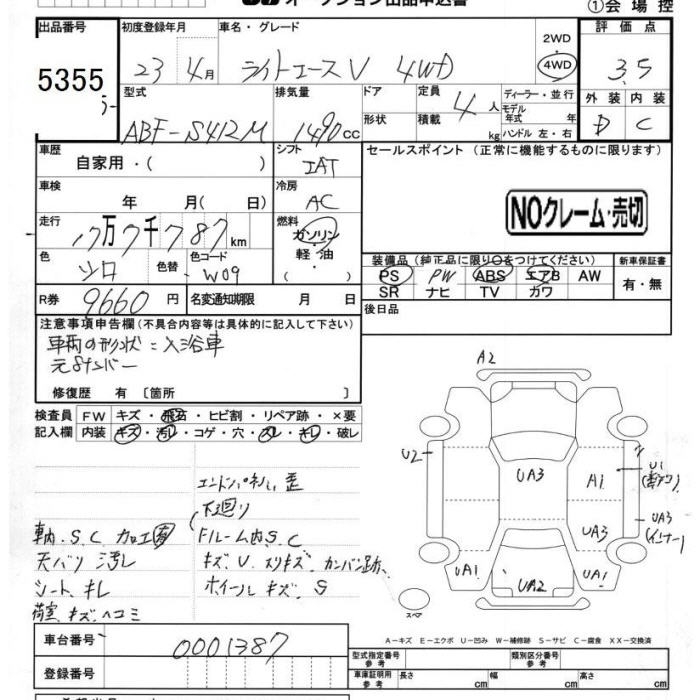 オークション出品申込書
①会場控
出品番号 5355
初度登録年月 23年4月
車名・グレード ライトエースV 4WD
2WD
4WD
評価点 3.5
外装 D
内装 C
型式 ABF-S412M
排気量 1490cc
ドア
形状
定員 4人
積載 kg
ディーラー・並行
モデル年式 年式
ハンドル 左・右
車歴 自家用・( )
シフト IAT
セールスポイント (正常に機能するものに限ります)
車検 年 月( 日)
冷房 AC
NOクレーム・売切
走行 17万7千787km
燃料 ガソリン・軽油
( )
色 シロ
色替
カラーコード W09
装備品(純正品に限り○をつけてください)
新車保証書
PS PW ABS エアB AW
有・無
SR ナビ TV カワ
R券 9660円
名変通知期限 月 日
後日品
注意事項申告欄(不具合内容等は具体的に記入して下さい)
車両の形状:入浴車
元8ナンバー
修復歴 有〔箇所 〕
検査員記入欄
FW キズ・飛石・ヒビ割・リペア跡・×要
内装 キズ・汚レ・コゲ・穴・スレ・キレ・破レ
エンドパネル歪
下廻り
車内、S、C、加工有
Fルーム内S、C
天バリ汚レ
キズ、U、スリキズ、カンバン跡、
シート、キレ
ホイールキズ、S
荷室、キズ、ヘコミ
A2
U2
UA3
A1
U1
UA3
UA3
(インナー)
UA1
UA2
UA1
スペア
A-キズ E-エクボ U-凹み W-補修跡 S-サビ C-腐食 XX-交換済
車台番号 0001387
型式指定番号 参考
類別区分番号 参考
登録番号
車庫証明用 参考
長さ cm
幅 cm
高さ cm